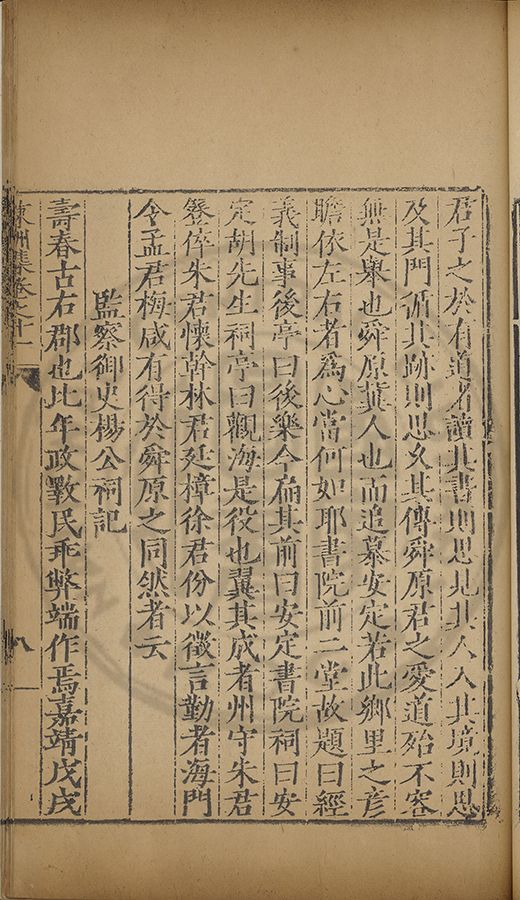 君子之於有道者讀其書則思見其人入其境則思
及其門循其跡則思久其傳舜原君之愛道殆不容
無是舉也舜原冀人也而追慕安定若此鄉里之彦
瞻依左右者為心當何如耶書院前二堂故題曰經
義制事後亭曰後樂今扁其前曰安定書院祠曰安
定胡先生祠亭曰觀海是役也翼其成者州守朱君
簦倅朱君懷幹林君廷樟徐君份以徵言勤者海門
令孟君梅咸有得於舜原之同然者云
監察御史楊公祠記
壽春古右郡也比年政斁民乖弊端作焉嘉靖戊戌
集卷之十一
八